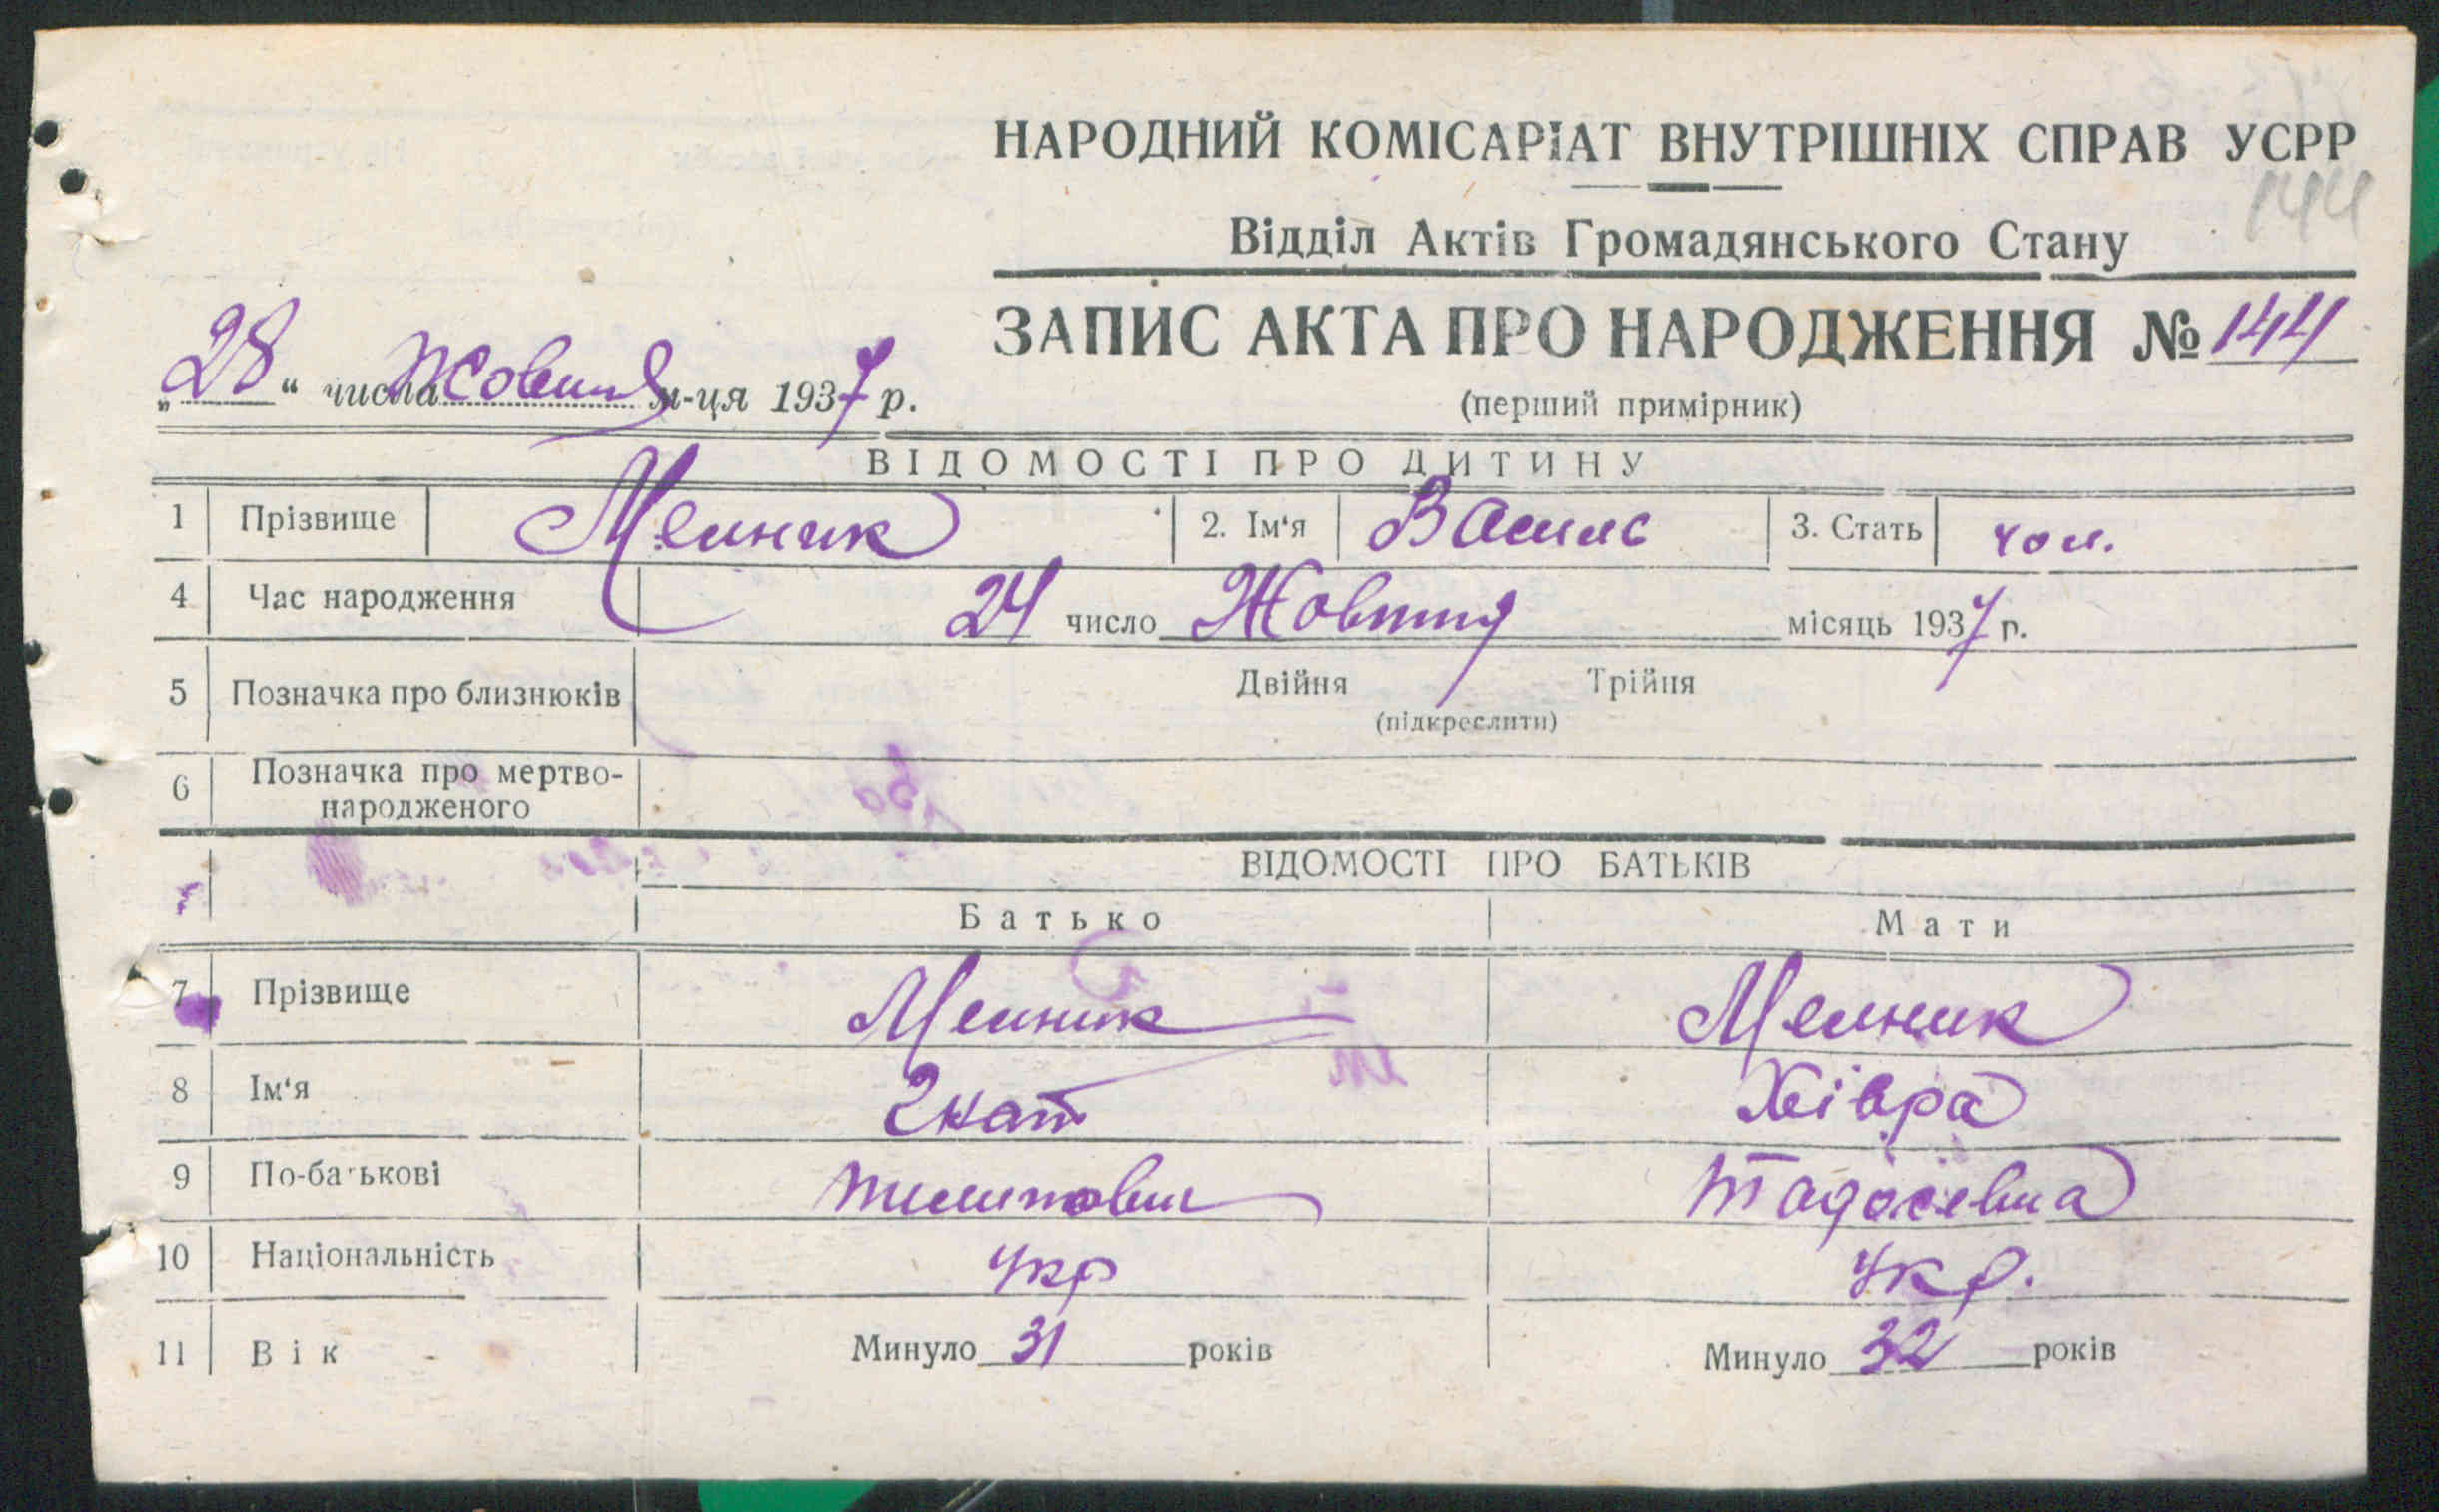 НАРОДНИЙ КОМІСАРІАТ ВНУТРІШНІХ СПРАВ УСРР
144
Відділ Актів Громадянського Стану
ЗАПИС АКТА ПРО НАРОДЖЕННЯ № 144
(перший примірник)
„28“ числа Жовтня м-ця 1937 р.
ВІДОМОСТІ ПРО ДИТИНУ
1 Прізвище Мелник 2. Ім‘я Василь 3. Стать чол.
4 Час народження 24 число Жовтня місяць 1937 р.
5 Позначка про близнюків Двійня Трійня
(підкреслити)
6 Позначка про мертво-
народженого
ВІДОМОСТІ ПРО БАТЬКІВ
Батько Мати
7 Прізвище Мелник Мелник
8 Ім‘я Гнат Хівра
9 По-батькові Тадосевна
10 Національність Укр Укр.
11 Вік Минуло 31 років Минуло 32 років